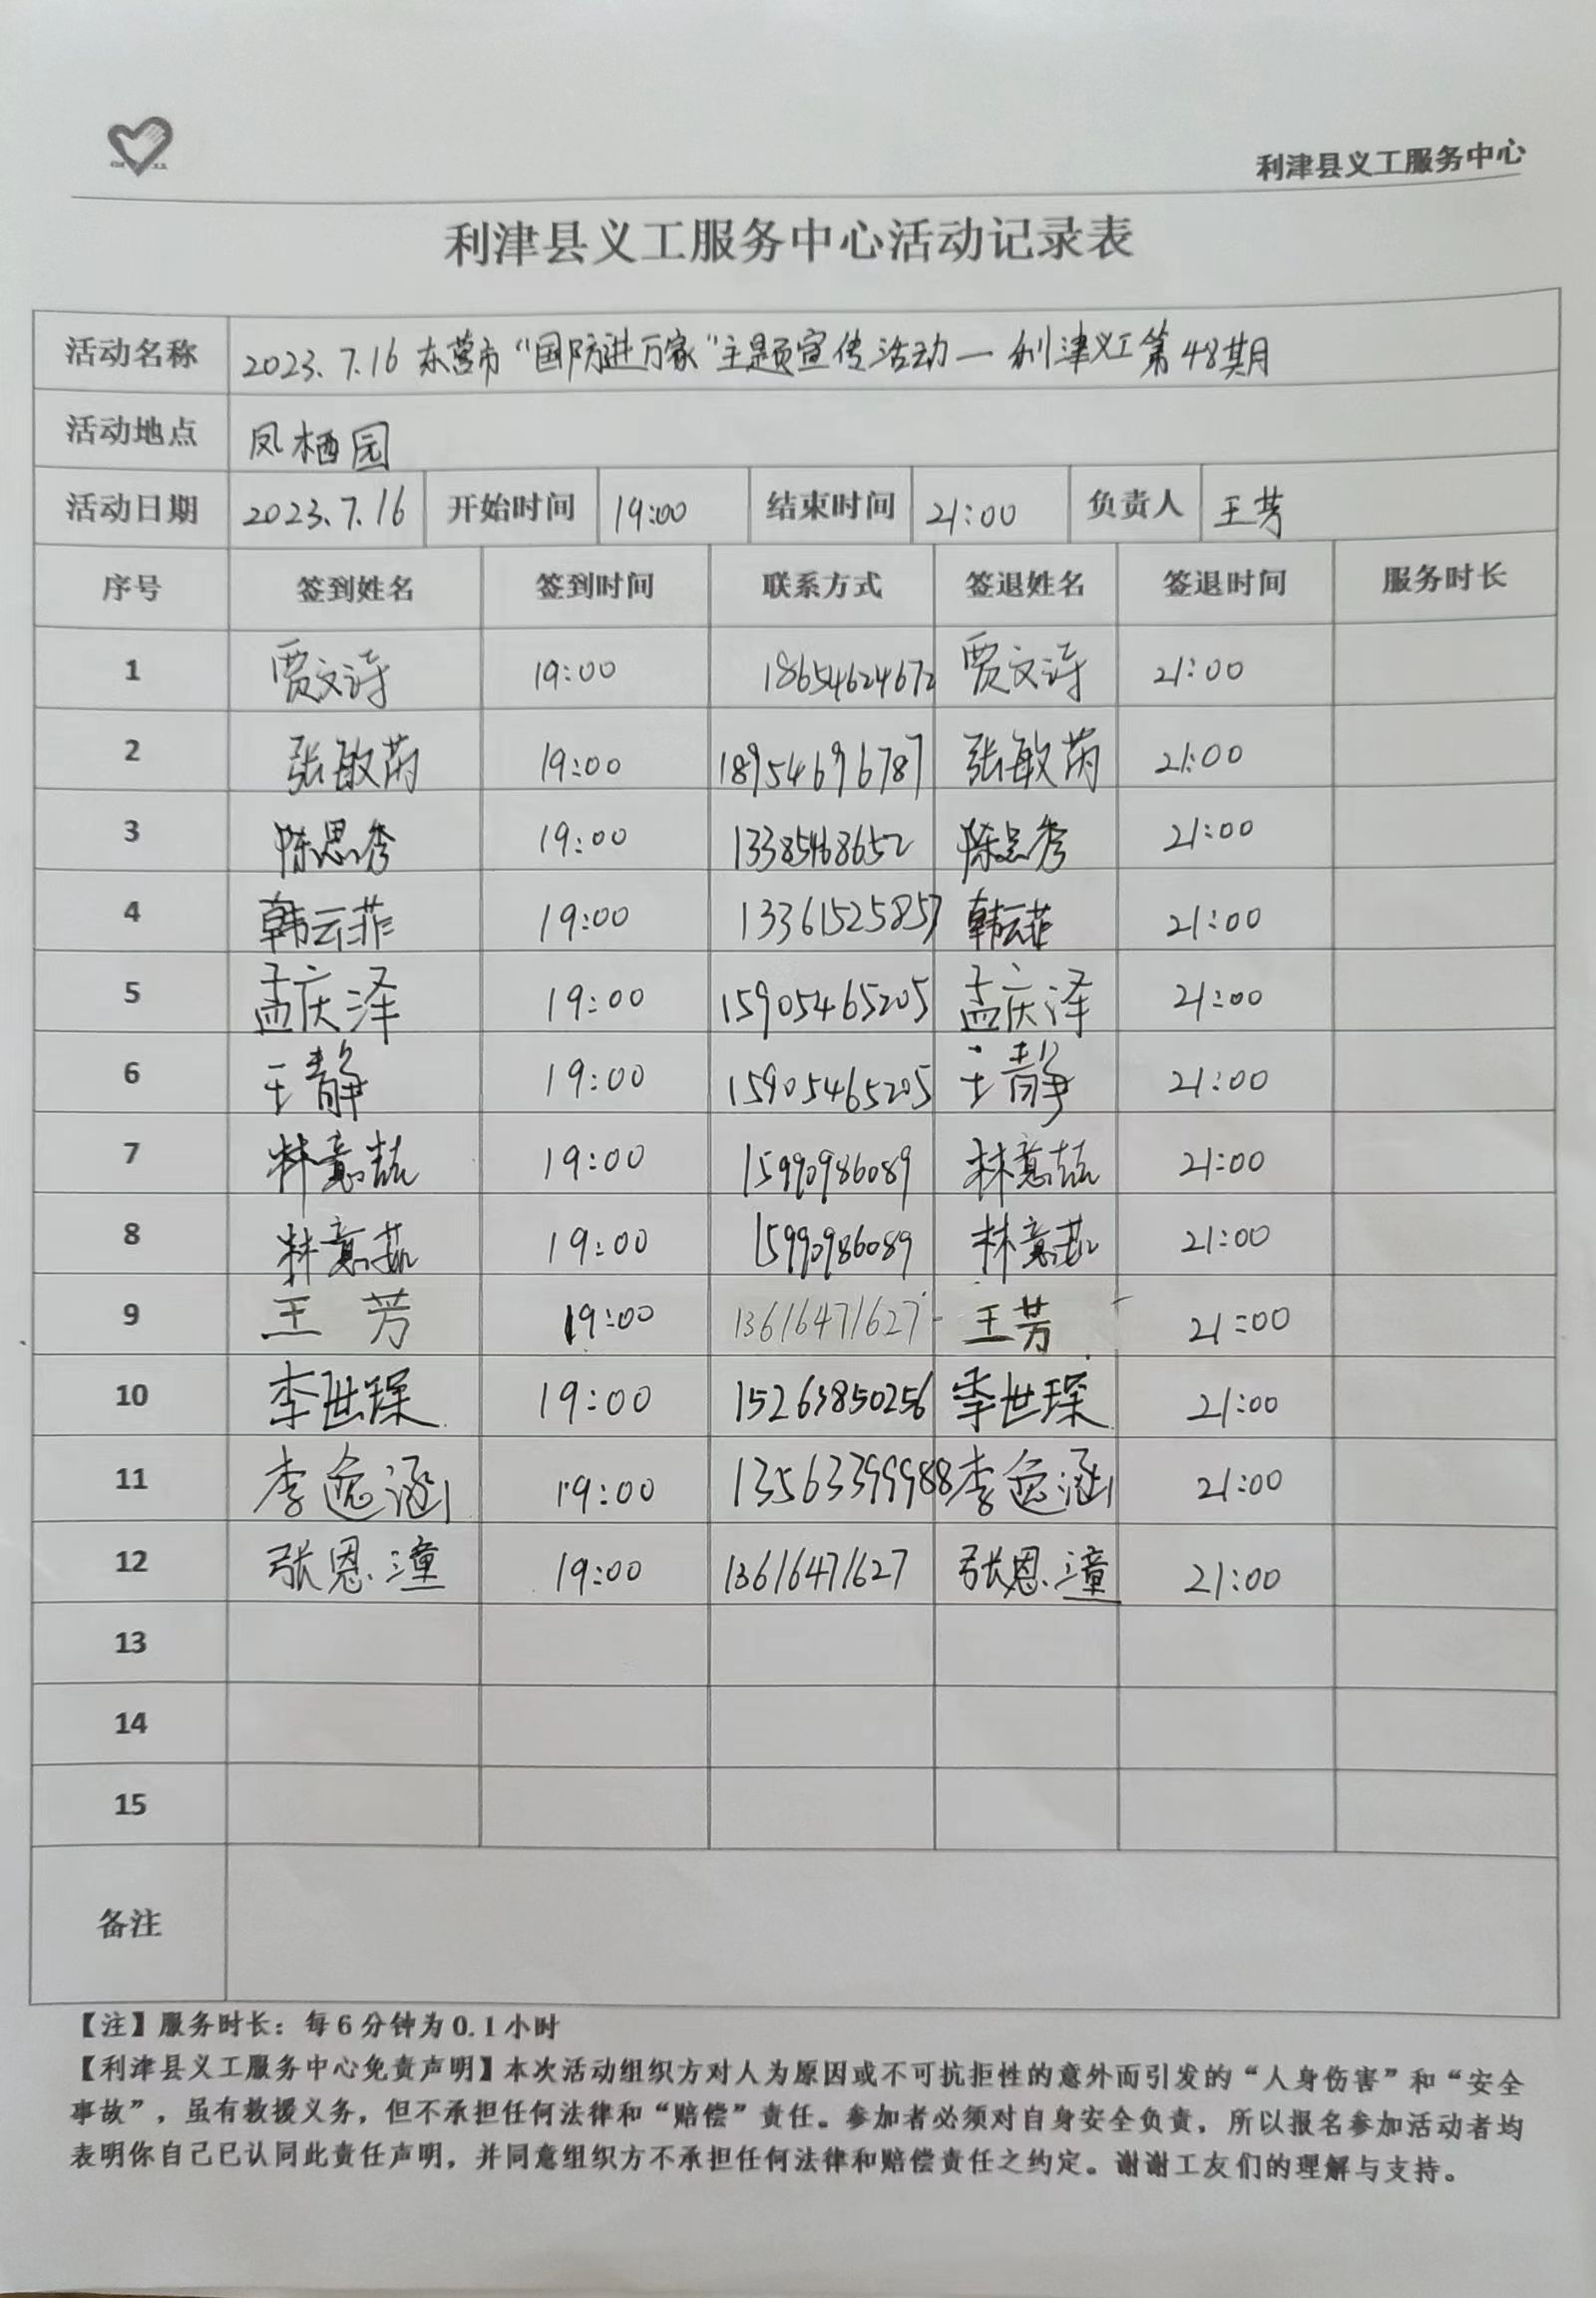 利津县义工服务中心
利津县义工服务中心活动记录表
活动名称 2023.7.16 东营市“国防进万家”主题宣传活动—利津义工第48期
活动地点 凤栖园
活动日期 2023.7.16 开始时间 19:00 结束时间 21:00 负责人 王芳
序号 签到姓名 签到时间 联系方式 签退姓名 签退时间 服务时长
1 贾文诗 19:00 18654624672 贾文诗 21:00
2 张敏芮 19:00 18954696787 张敏芮 21:00
3 陈思秀 19:00 13385468652 陈思秀 21:00
4 韩云菲 19:00 13361525857 韩云菲 21:00
5 孟庆泽 19:00 15905465205 孟庆泽 21:00
6 王静 19:00 15905465205 王静 21:00
7 林意喆 19:00 15990986089 林意喆 21:00
8 林意茹 19:00 15990986089 林意茹 21:00
9 王芳 19:00 13616471627 王芳 21:00
10 李世琛 19:00 15263850256 李世琛 21:00
11 李逸涵 19:00 13563399988 李逸涵 21:00
12 张恩潼 19:00 13616471627 张恩潼 21:00
13
14
15
备注
【注】服务时长：每6分钟为0.1小时
【利津县义工服务中心免责声明】本次活动组织方对人为原因或不可抗拒性的意外而引发的“人身伤害”和“安全
事故”，虽有救援义务，但不承担任何法律和“赔偿”责任。参加者必须对自身安全负责，所以报名参加活动者均
表明你自己已认同此责任声明，并同意组织方不承担任何法律和赔偿责任之约定。谢谢工友们的理解与支持。